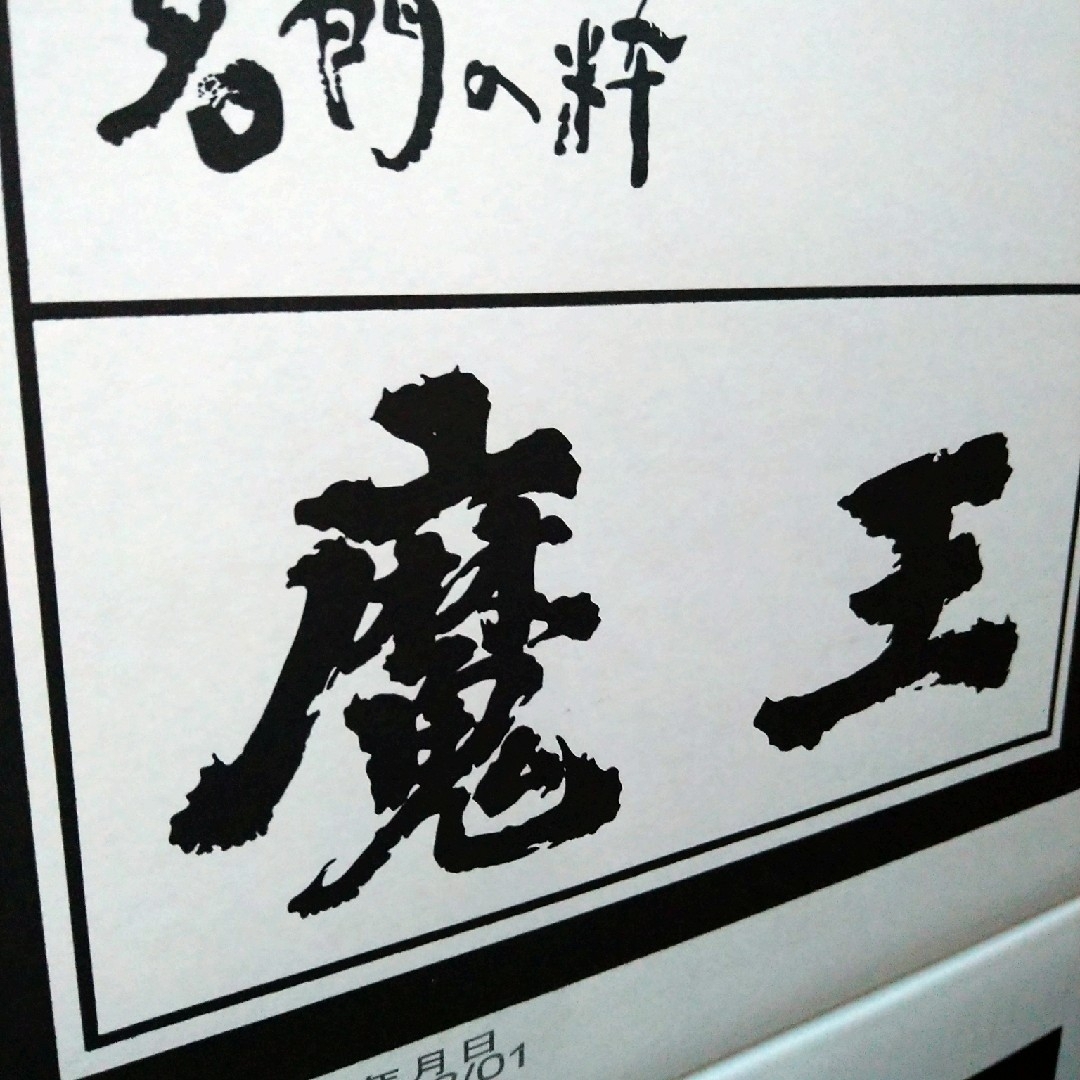 名門の粋
魔王
年月日
/01